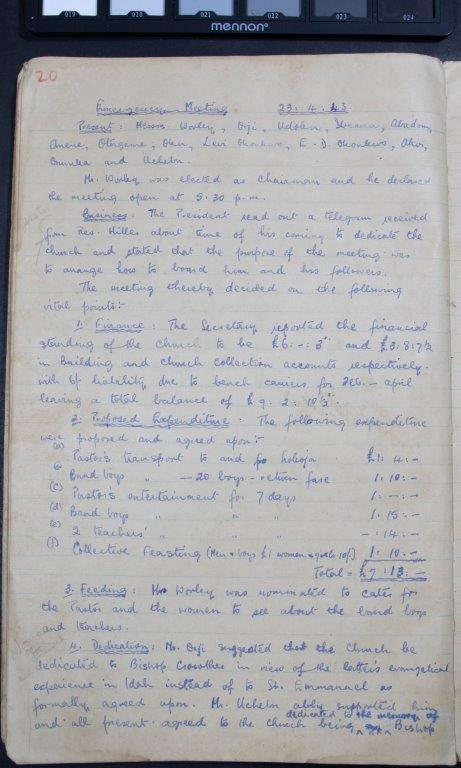 019 020 021 022 023 024
mennon®
20
Emergency Meeting 23: 4: 43
Present: Messrs Worley, Orji, Udokwu,
Levi Okonkwo, E. D. Okonkwo,
and Uchelu.
Mr. Worley was elected as Chairman and he declared
the meeting open at 5.30 p.m.
Business: The President read out a telegram received
from Rev. Hilles about time of his coming to dedicate the
church and stated that the purpose of the meeting was
to arrange how to board him and his followers.
The meeting thereby decided on the following
vital points:-
1. Finance: The Secretary reported the financial
standing of the Church to be £6:-:3 and £3:8:7½
in Building and Church collection accounts respectively.
with 6/- liability due to bench carriers for Feb. - April
leaving a total balance of £9: 2: 10½.
2. Proposed Expenditure: The following expenditure
were proposed and agreed upon:-
(a) Pastor's transport to and fro £1: 4:-
(b) Band boys " - 20 boys - return fare 1: 10:-
(c) Pastor's entertainment for 7 days 1:-:-
(d) Band boys " " " 1: 15:-
(e) 2 teachers' " " " -: 14:-
(f) Collective Feasting (Men & boys £1 women & girls 10/-) 1: 10.-
Total = £7: 13:-
3. Feeding: Mrs Worley was nominated to cater for
the Pastor and the women to see about the band boys
and teachers.
4. Dedication: Mr. Orji suggested that the Church be
dedicated to Bishop Crowther in view of the latter's evangelical
experience in Idah instead of to St. Emmanuel as
formally agreed upon. Mr. Uchelu ably supported him
and all present agreed to the Church being dedicated to the memory of Bishop